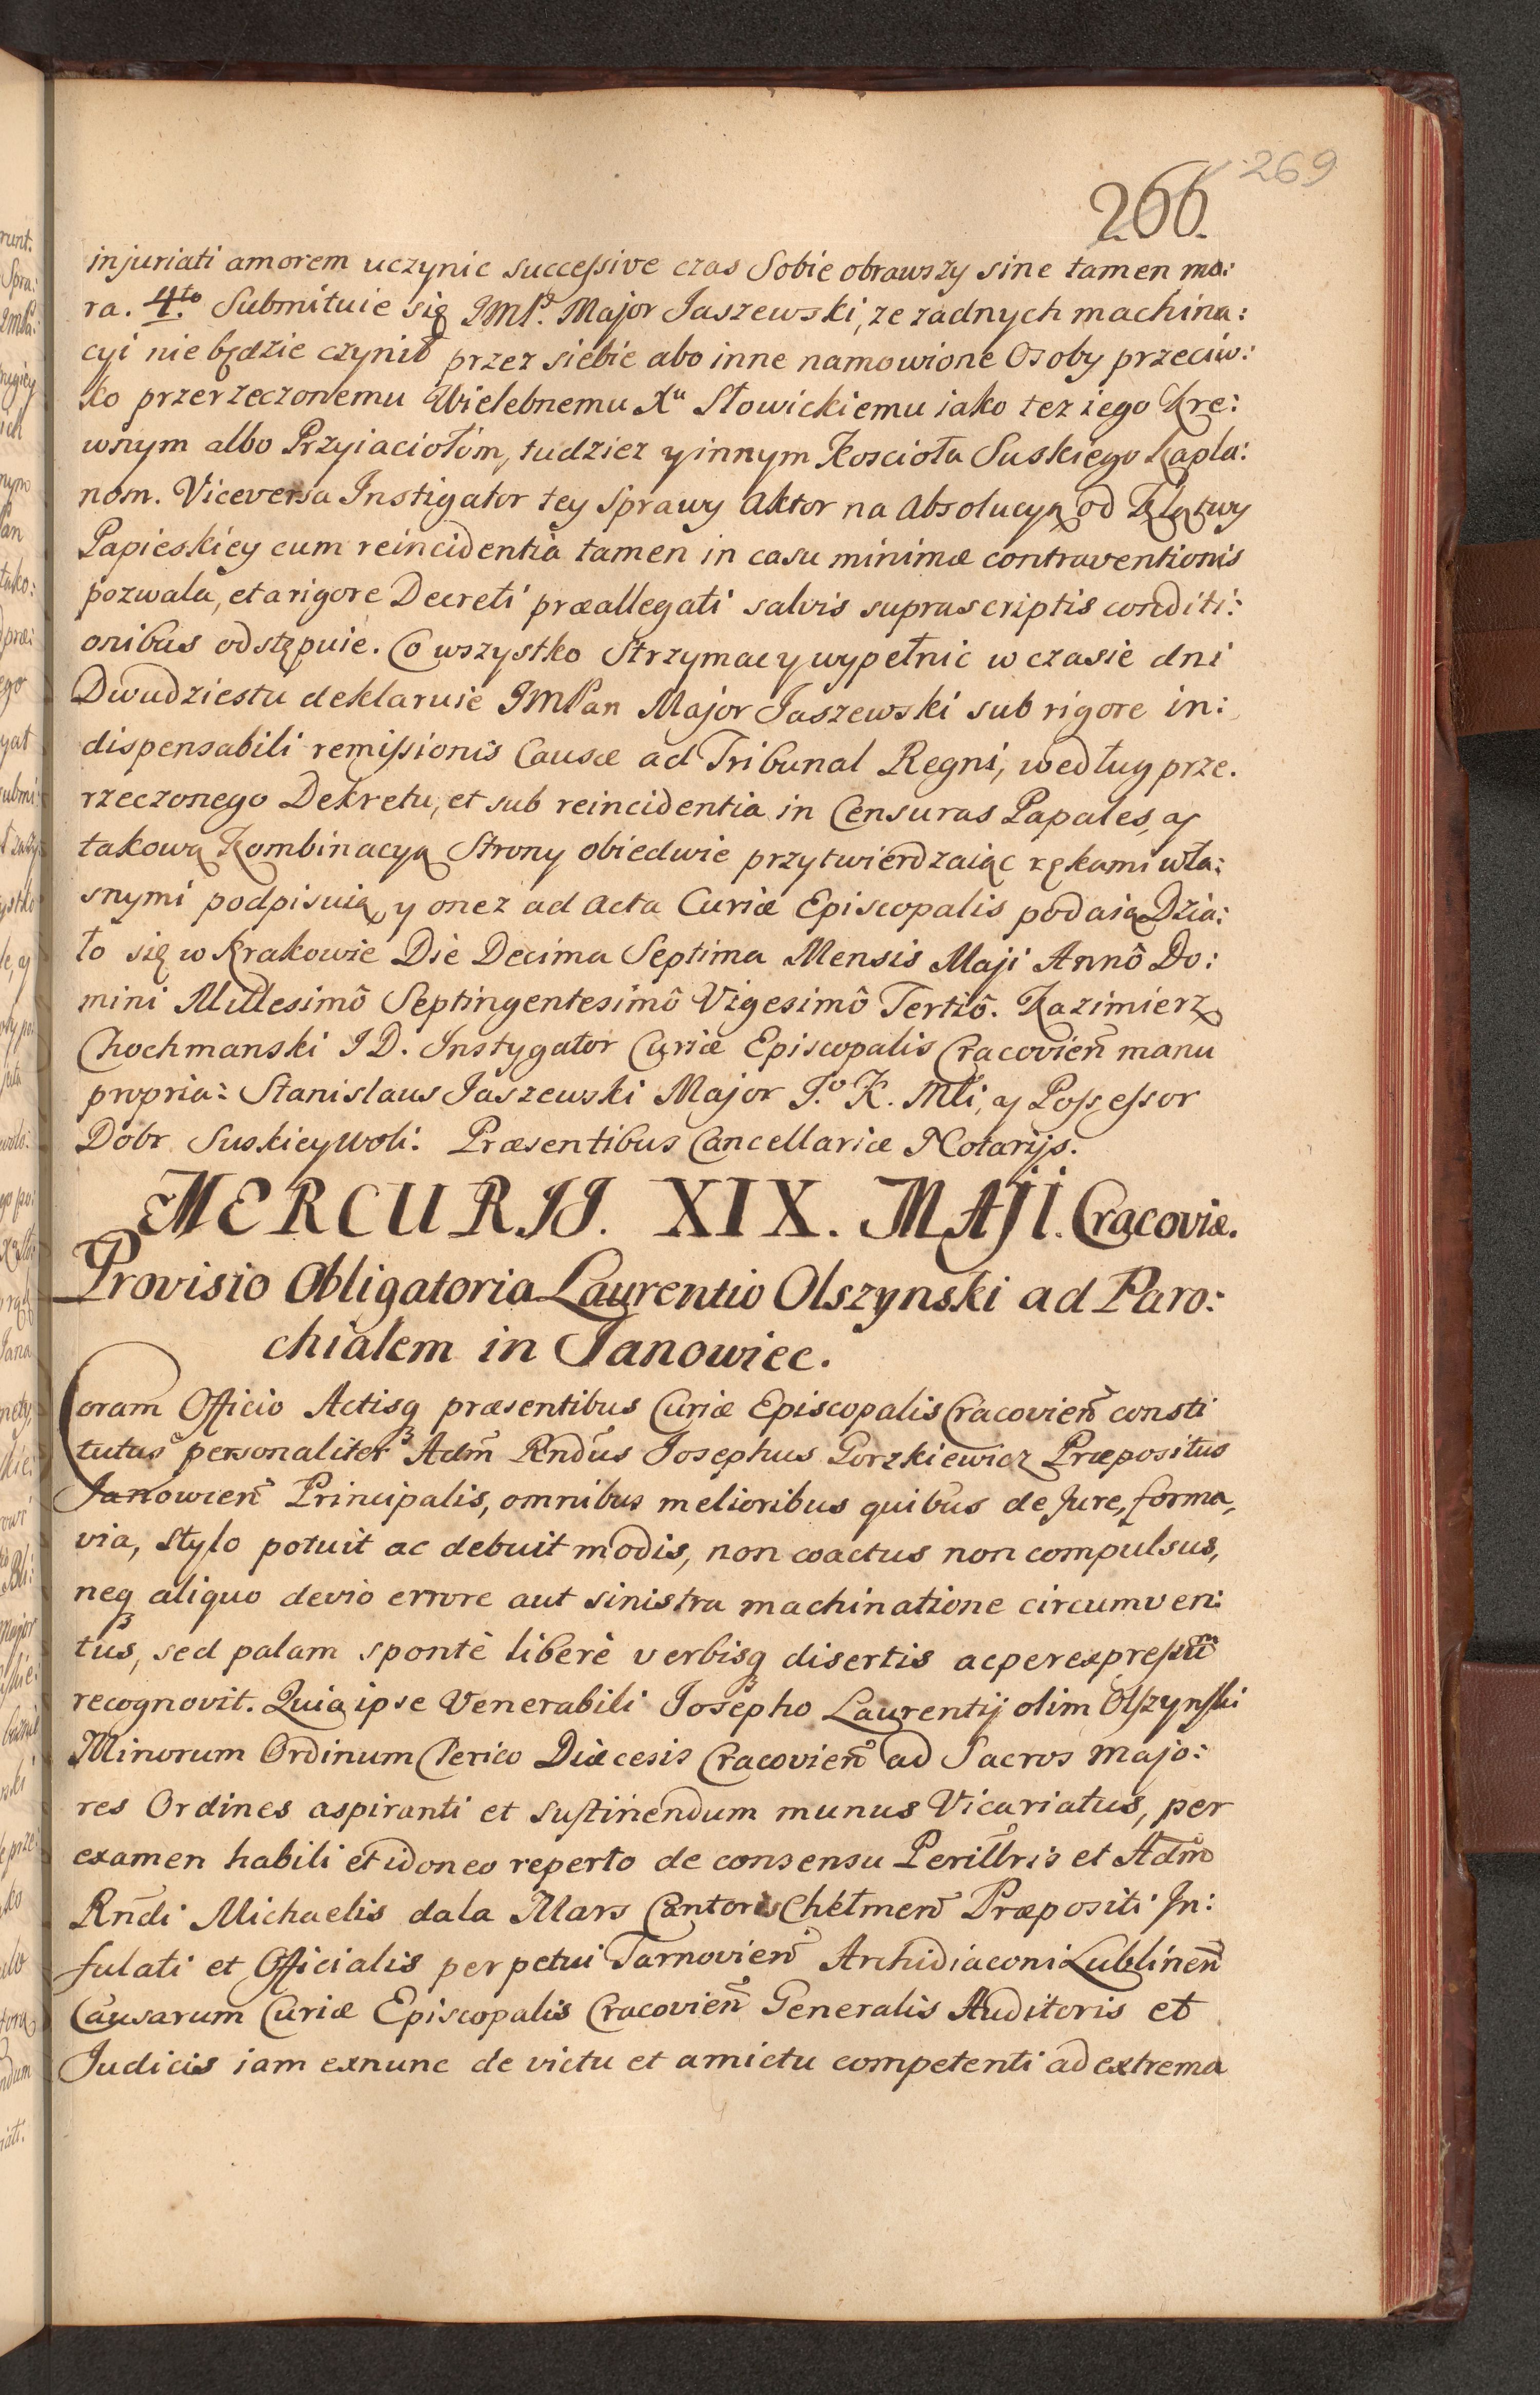 269
266.
injuriati amorem uczynic succeſsive czas Sobie obrawszy sine tamen mo:
ra. 4to. Submituie się JMP. Major Jaszewski, ze zadnych machina:
cyi nie będzie czynił przez siebie abo inne namowione Osoby przeciw:
ko przerzeczonemu Wielebnemu Xu Słowickiemu iako tez iego Kre:
wnym albo Przyiaciołom, tudziez y innym Koscioła Suskiego Kapła:
nom. Viceversa Instigator tey Sprawy Aktor na Absolucyą od Klątwy
Papieskiey cum reincidentia tamen in casu minimæ contraventionis
pozwala, et a rigore Decreti præallegati salvis suprascriptis conditi:
onibus odstępuie. Co wszystko Strzymac y wypełnic w czasie dni
Dwudziestu deklaruie JMPan Major Jaszewski sub rigore in:
dispensabili remiſsionis Causæ ad Tribunal Regni, według prze.
rzeczonego Dekretu, et sub reincidentia in Censuras Papales, y
takową Kombinacyą Strony obiedwie przytwierdzaiąc rękami wła:
snymi podpisuią, y onez ad Acta Curiæ Episcopalis podaią Dzia:
ło się w Krakowie Die Decima Septima Mensis Maji Annô Do:
mini Millesimô Septingentesimô Vigesimô Tertiô. Kazimierz
Chochmanski J D. Instygator Curiæ Episcopalis Cracovien̄ manu
propria: Stanislaus Jaszewski Major J.o K. Mti, y Poſseſsor
Dobr Suskiey woli. Præsentibus Cancellariæ Notarijs.
MERCURIJ. XIX. MAJI. Cracoviæ.
Provisio Obligatoria Laurentio Olszynski ad Paro:
chialem in Janowiec.
Coram Officio Actisq̨ præsentibus Curiæ Episcopalis Cracovien̄ consti
tutus personaliter Adm̄ Rndūs Josephus Gorzkiewicz Præpositus
Janowien̄ Principalis, omnibus melioribus quibus de Jure, forma,
via, stylo potuit ac debuit modis, non coactus non compulsus,
neq̨ aliquo devio errore aut sinistra machinatione circumven:
tus, sed palam spontè liberè verbisq̨ disertis ac per expreſsū
recognovit. Quia ipse Venerabili Josepho Laurentij olim Olſzynſki
Minorum Ordinum Clerico Diæcesis Cracovien̄ ad Sacros majo:
res Ordines aspiranti et suſtinendum munus Vicariatus, per
examen habili et idoneo reperto de consensu Perillr̄is et Adm̄
Rn̄di Michaelis dala Mars Cantoris Chełmen̄ Præpositi In:
fulati et Officialis perpetui Tarnovien̄ Archidiaconi Lublinen̄
Causarum Curiæ Episcopalis Cracovien̄ Generalis Auditoris et
Judicis iam exnunc de victu et amictu competenti ad extrema